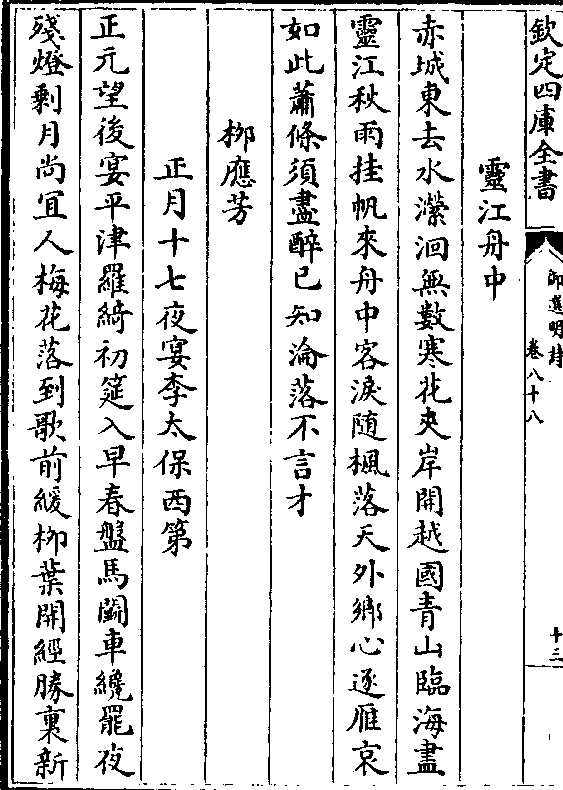 欽定四庫全書
御選明詩
卷八十八
十三
靈江舟中
赤城東去水瀠洄無數寒花夾岸開越國青山臨海盡
靈江秋雨挂帆來舟中客淚随楓落天外鄉心逐雁哀
如此蕭條須盡醉已知淪落不言才
栁應芳
正月十七夜宴李太保西第
正元望後宴平津羅綺初筵入早春盤馬鬭車纔罷夜
殘燈剩月尚宜人梅花落到歌前緩栁葉開經勝裏新